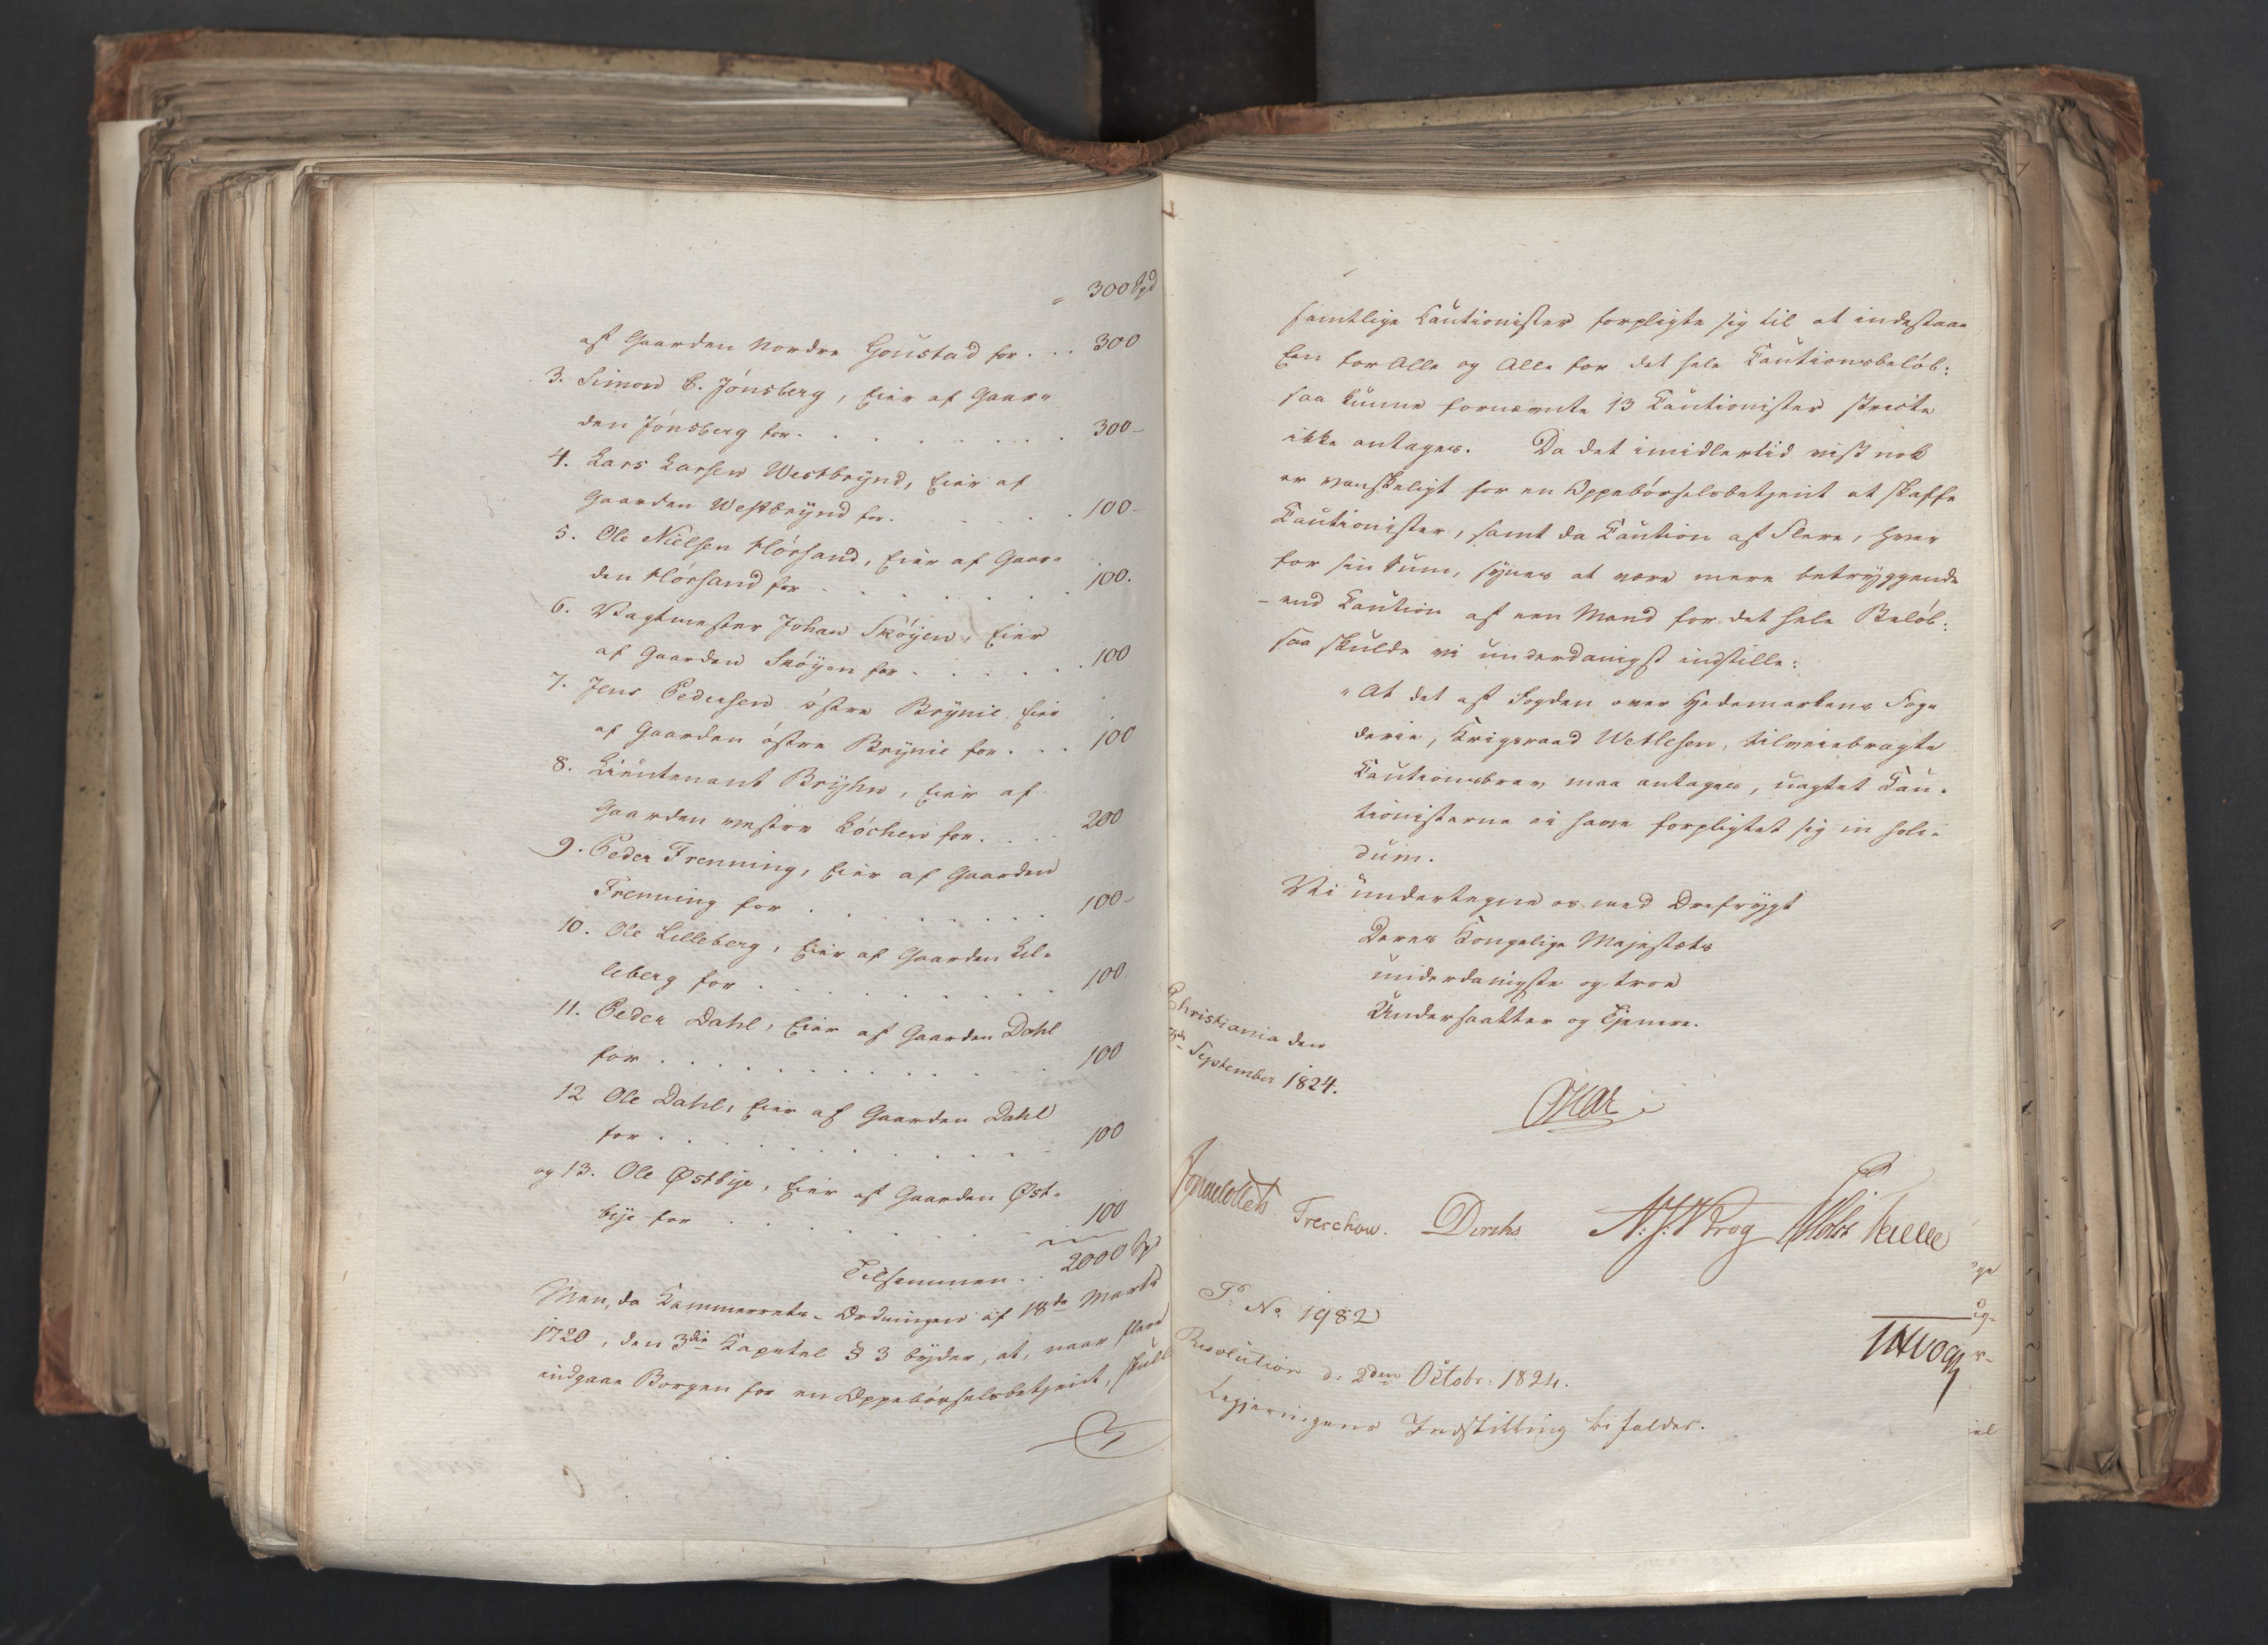 " 300 Spd
af Gaarden Nordre Goustad for . . . 300
3. Simon C. Jónsberg, Eier af Gaar-
den Jónsberg for . . . . . . . . 300-
4. Lars Larsen Westbrÿnd, Eier af
Gaarden Westbrÿnd for . . . . . 100-
5. Ole Nielsen Hórsand, Eier af Gaar-
den Hórsand for . . . . . . . 100.
6. Vagtmester Johan Skóÿen, Eier
af Gaarden Skóÿen for . . . . . . 100
7. Jens Pedersen óstre Brÿnie, Eier
af Gaarden óstre Brÿnie for . . . 100
8. Lieutenant Brÿhn, Eier af
Gaarden vestre Lóchen for . . . 200
9. Peder Frenning, Eier af Gaarden
Frenning for . . . . . . . . 100-
10. Ole Lilleberg, Eier af Gaarden Lil-
leberg for . . . . . . . . . 100
11. Peder Dahl, Eier af Gaarden Dahl
for . . . . . . . . . . . 100
12 Ole Dahl, Eier af Gaarden Dahl
for . . . . . . . . . . . 100
og 13. Ole Østbÿe, Eier af Gaarden Øst-
bÿe for . . . . . . . . . 100
Tilsammen . . 2000 Spd
Men, da Kammerrets-Ordningen af 18de Marts
1720, den 3die Kapitel § 3 bÿder, at, naar flere
indgaae Borgen for en Oppebórselsbetjent, skulle
samtlige Cautionister forpligte sig til at indestaae
Een for Alle og Alle for det hele Cautionsbelób:
saa kunne fornævnte 13 Cautionister stricte
ikke antages. Da det imidlertid vist nok
er vanskeligt for en Oppebórselsbetjent at skaffe
Cautionister, samt da Caution af Flere, hver
for sin Sum, sÿnes at være mere betrÿggende
end Caution af een Mand for det hele Belób:
saa skulde vi underdanigst indstille:
"At det af Fogden over Hedemarkens Fog-
derie, Krigsraad Wetlesen, tilveiebragte
Cautionsbrev maa antages, uagtet Cau-
tionisterne ei have forpligtet sig in soli-
dum.
Vi undertegne os med Ærefrÿgt
Deres Kongelige Majestæts
underdanigste og troe
Undersaatter og Tjenere.
Christiania den
September 1824.
Oscar
Jonas Collett Treschow. Diriks N. J. Krog
P. No 1982
JHVogt
Resolution d: 2den Octobr: 1824.
Regjeringens Indstilling bifaldes.